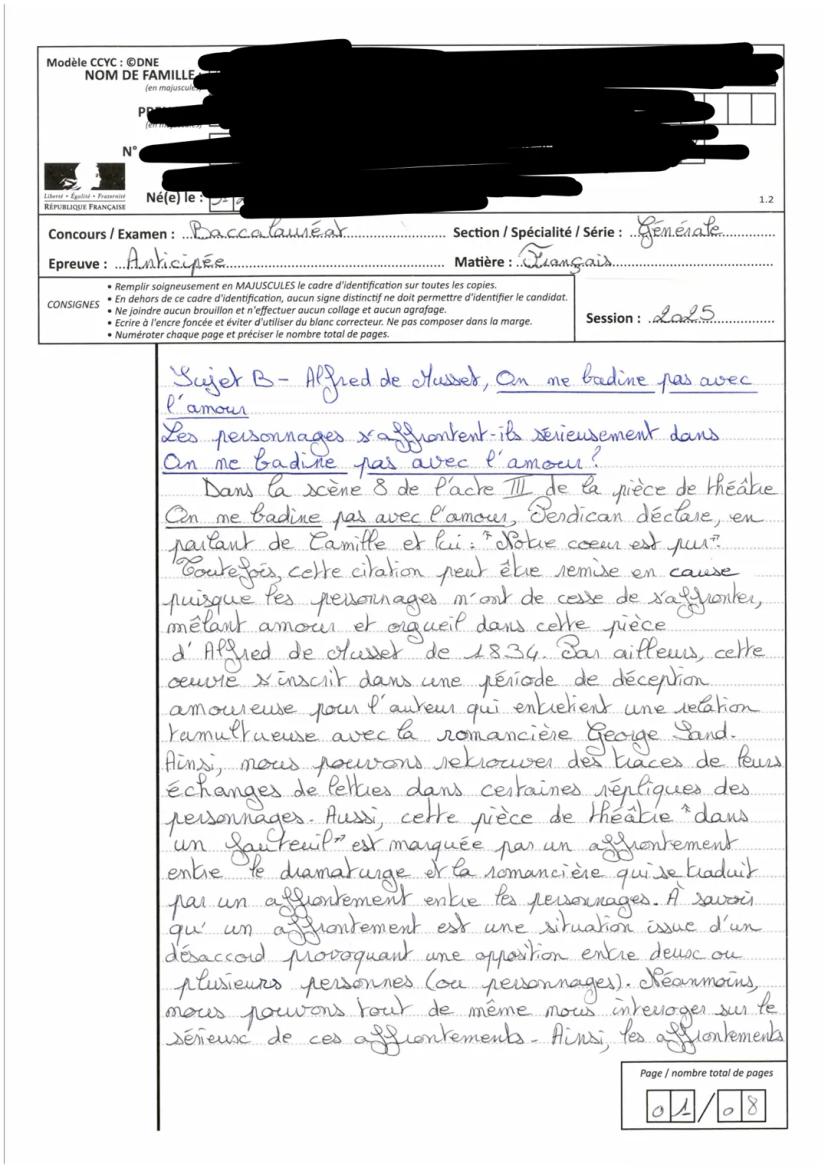 Modèle CCYC : ©DNE
NOM DE FAMILLE :
(en majuscules)
N°
Liberté • Égalité • Fraternité
RÉPUBLIQUE FRANÇAISE
Né(e) le :
1.2
Concours / Examen : Baccalauréat Section / Spécialité / Série : Générale
Epreuve : Anticipée Matière : Français
CONSIGNES
• Remplir soigneusement en MAJUSCULES le cadre d'identification sur toutes les copies.
• En dehors de ce cadre d'identification, aucun signe distinctif ne doit permettre d'identifier le candidat.
• Ne joindre aucun brouillon et n'effectuer aucun collage et aucun agrafage.
• Ecrire à l'encre foncée et éviter d'utiliser du blanc correcteur. Ne pas composer dans la marge.
• Numéroter chaque page et préciser le nombre total de pages.
Session : 2025
Sujet B - Alfred de Musset, On ne badine pas avec
l'amour
Les personnages s'affrontent-ils sérieusement dans
On ne badine pas avec l'amour ?
Dans la scène 8 de l'acte III de la pièce de théâtre
On ne badine pas avec l'amour, Perdican déclare, en
parlant de Camille et lui : "Notre coeur est pur".
Toutefois, cette citation peut être remise en cause
puisque les personnages n'ont de cesse de s'affronter,
mêlant amour et orgueil dans cette pièce
d'Alfred de Musset de 1834. Par ailleurs, cette
œuvre s'inscrit dans une période de déception
amoureuse pour l'auteur qui entretient une relation
tumultueuse avec la romancière George Sand.
Ainsi, nous pouvons retrouver des traces de leurs
échanges de lettres dans certaines répliques des
personnages. Aussi, cette pièce de théâtre "dans
un fauteuil" est marquée par un affrontement
entre le dramaturge et la romancière qui se traduit
par un affrontement entre les personnages. À savoir
qu'un affrontement est une situation issue d'un
désaccord provoquant une opposition entre deux ou
plusieurs personnes (ou personnages). Néanmoins,
nous pouvons tout de même nous interroger sur le
sérieux de ces affrontements. Ainsi, les affrontements
Page / nombre total de pages
01/08